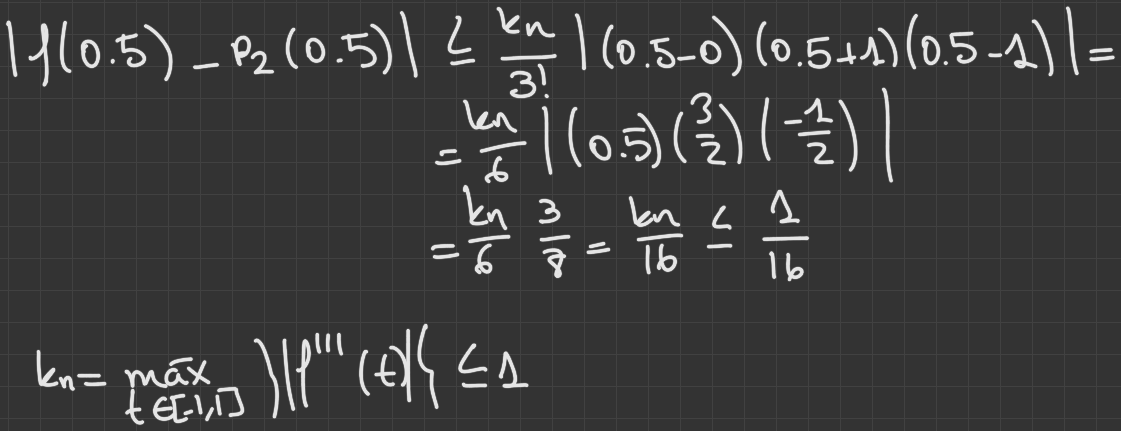 |f(0.5) - P₂(0.5)| ≤ kn/3! |(0.5-0)(0.5+1)(0.5-1)| =
= kn/6 |(0.5)(3/2)(-1/2)|
= kn/6 3/8 = kn/16 ≤ 1/16
kn = máx t∈[-1,1] }|f'''(t)|{ ≤ 1